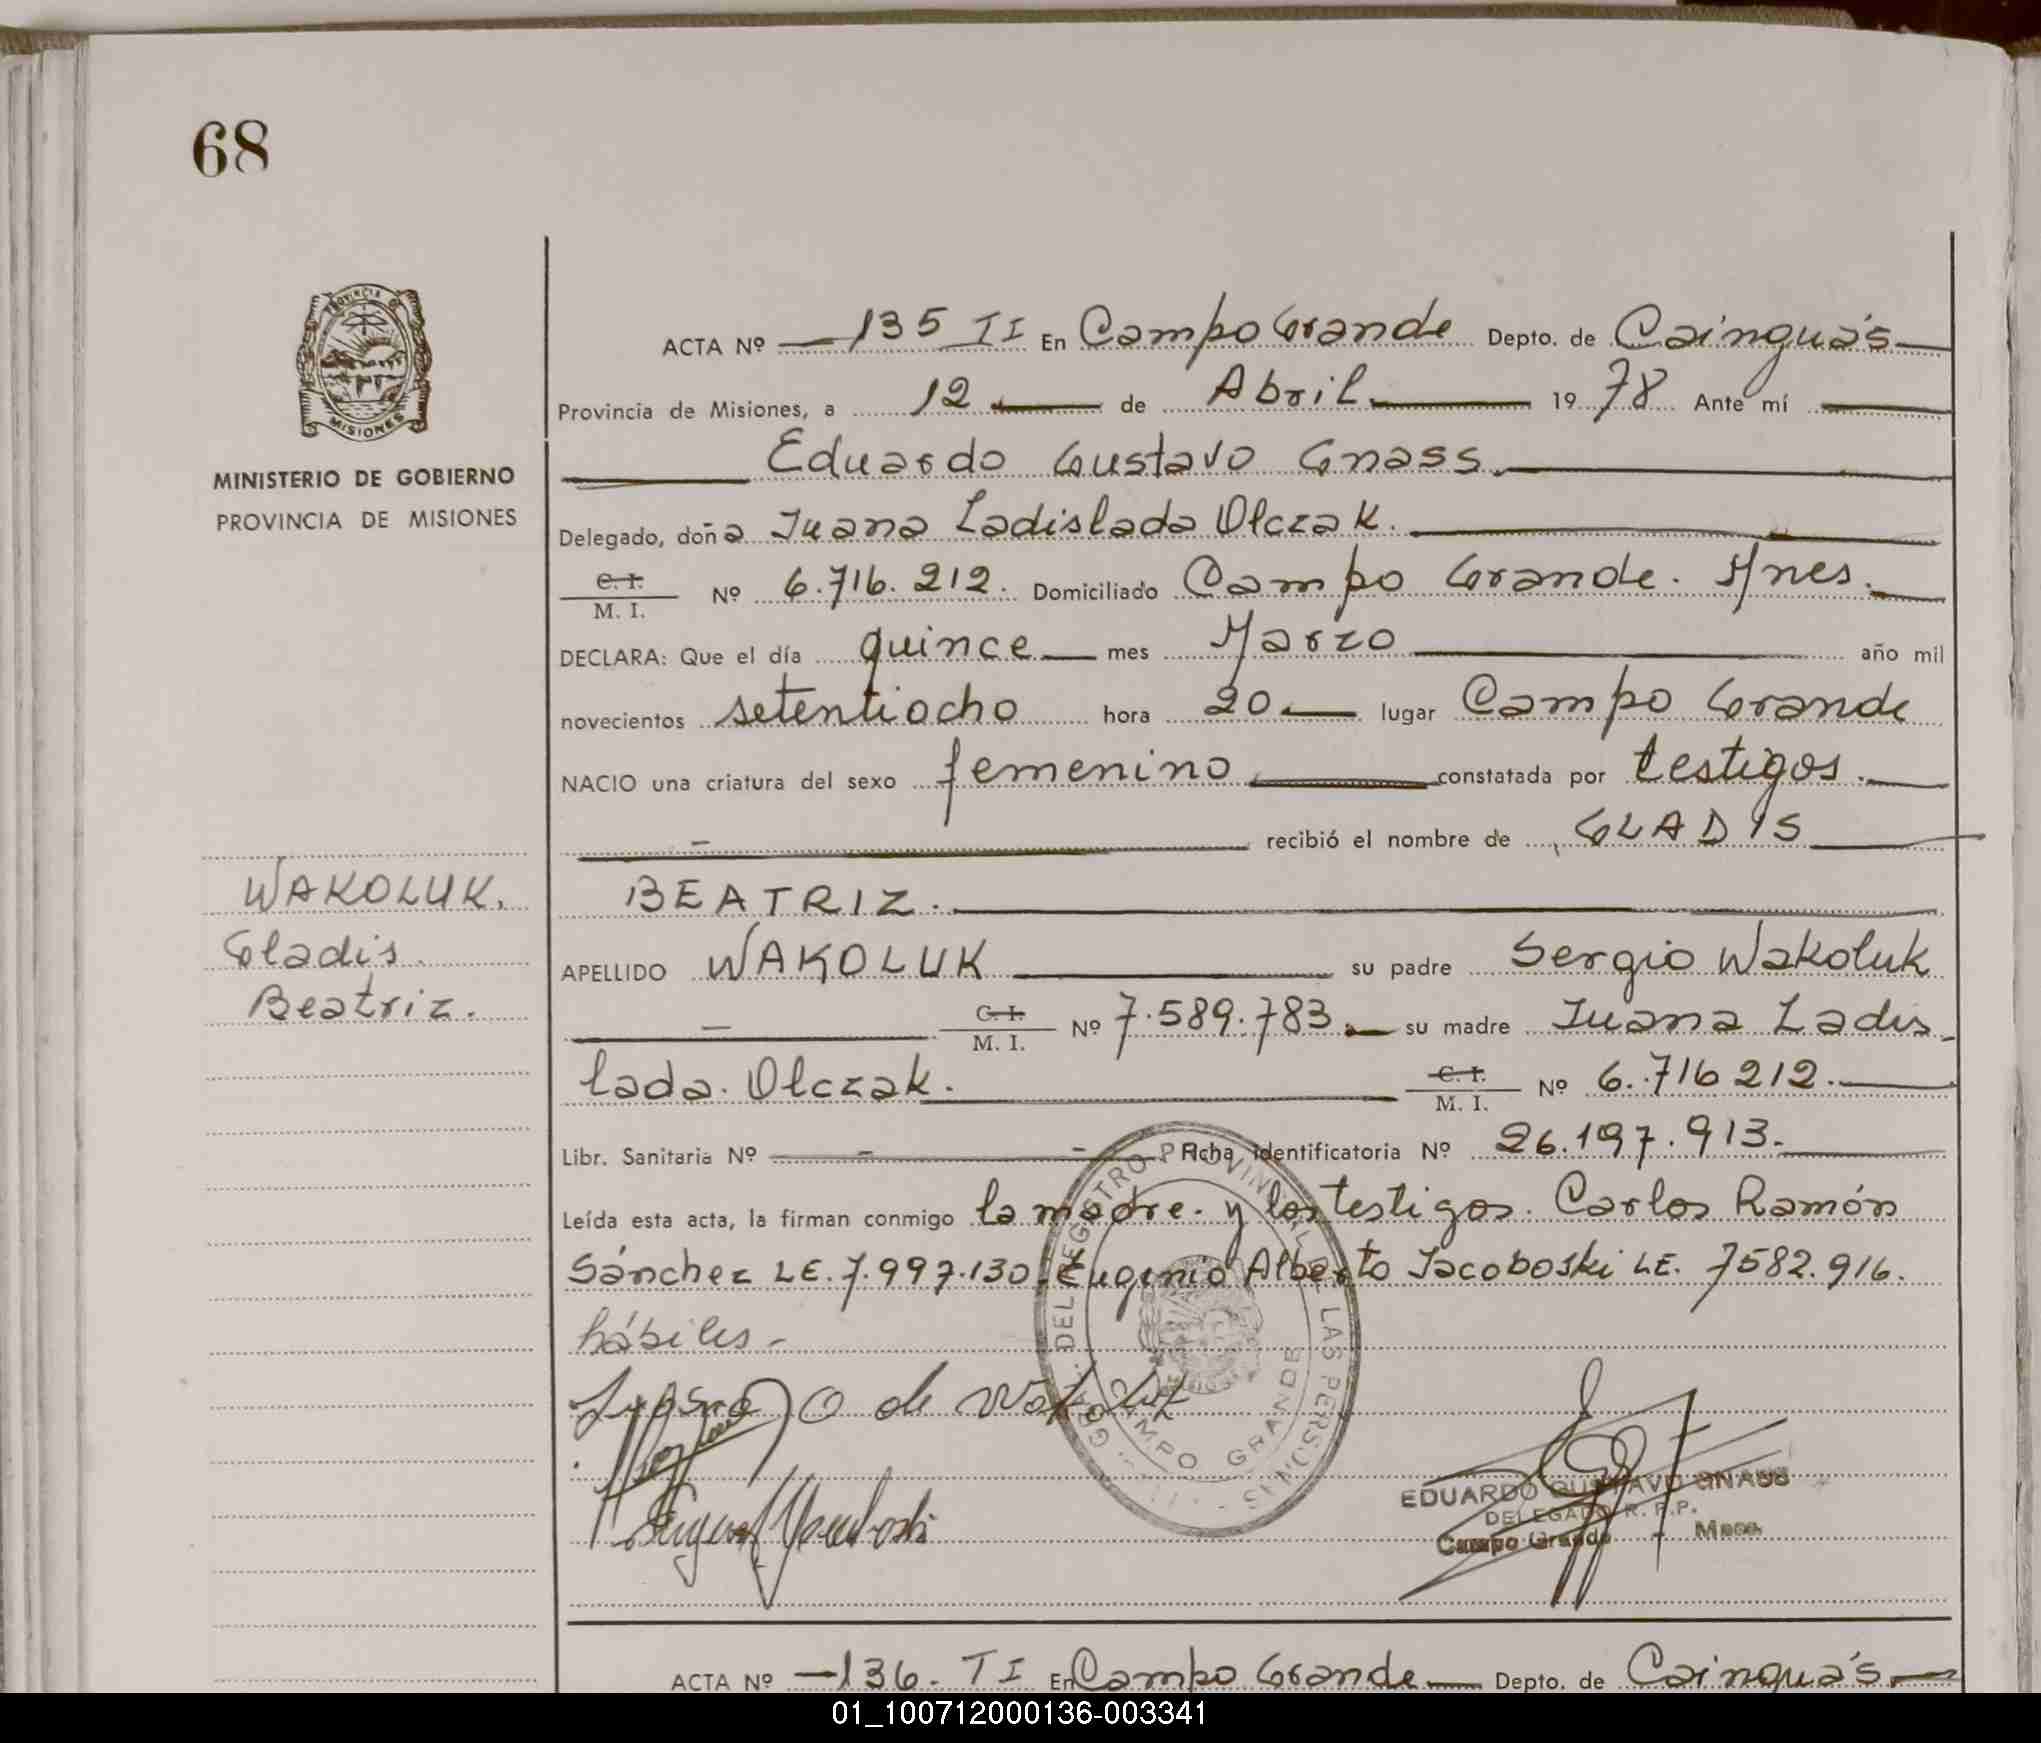 68
PROVINCIA DE
MISIONES
MINISTERIO DE GOBIERNO
PROVINCIA DE MISIONES
WAKOLUK.
Gladis
Beatriz.
ACTA Nº 135 TI En Campo Grande Depto. de Cainguás
Provincia de Misiones, a 12 de Abril 1978 Ante mí
Eduardo Gustavo Gnass.
Delegado, doña Juana Ladislada Olczak.
C. I.
M. I. Nº 6.716.212. Domiciliado Campo Grande. Mnes.
DECLARA: Que el día quince mes Marzo año mil
novecientos setentiocho hora 20 lugar Campo Grande
NACIO una criatura del sexo femenino constatada por testigos.
recibió el nombre de GLADIS
BEATRIZ.
APELLIDO WAKOLUK su padre Sergio Wakoluk
C. I.
M. I. Nº 7.589.783. su madre Juana Ladis
lada. Olczak. C. I.
M. I. Nº 6.716212.
Libr. Sanitaria Nº - - Ficha identificatoria Nº 26.197.913.
Leída esta acta, la firman conmigo la madre. y los testigos. Carlos Ramón
Sánchez LE. 7.997.130. Eugenio Alberto Jacoboski LE. 7582.916.
hábiles-
O de Wakoluk
DEL REGISTRO PROVINCIAL DE LAS PERSONAS
CAMPO GRANDE
EDUARDO GUSTAVO GNASS
DELEGADO R. P. P.
Campo Grande - Mnes.
ACTA Nº 136. TI En Campo Grande Depto. de Cainguás
01_100712000136-003341